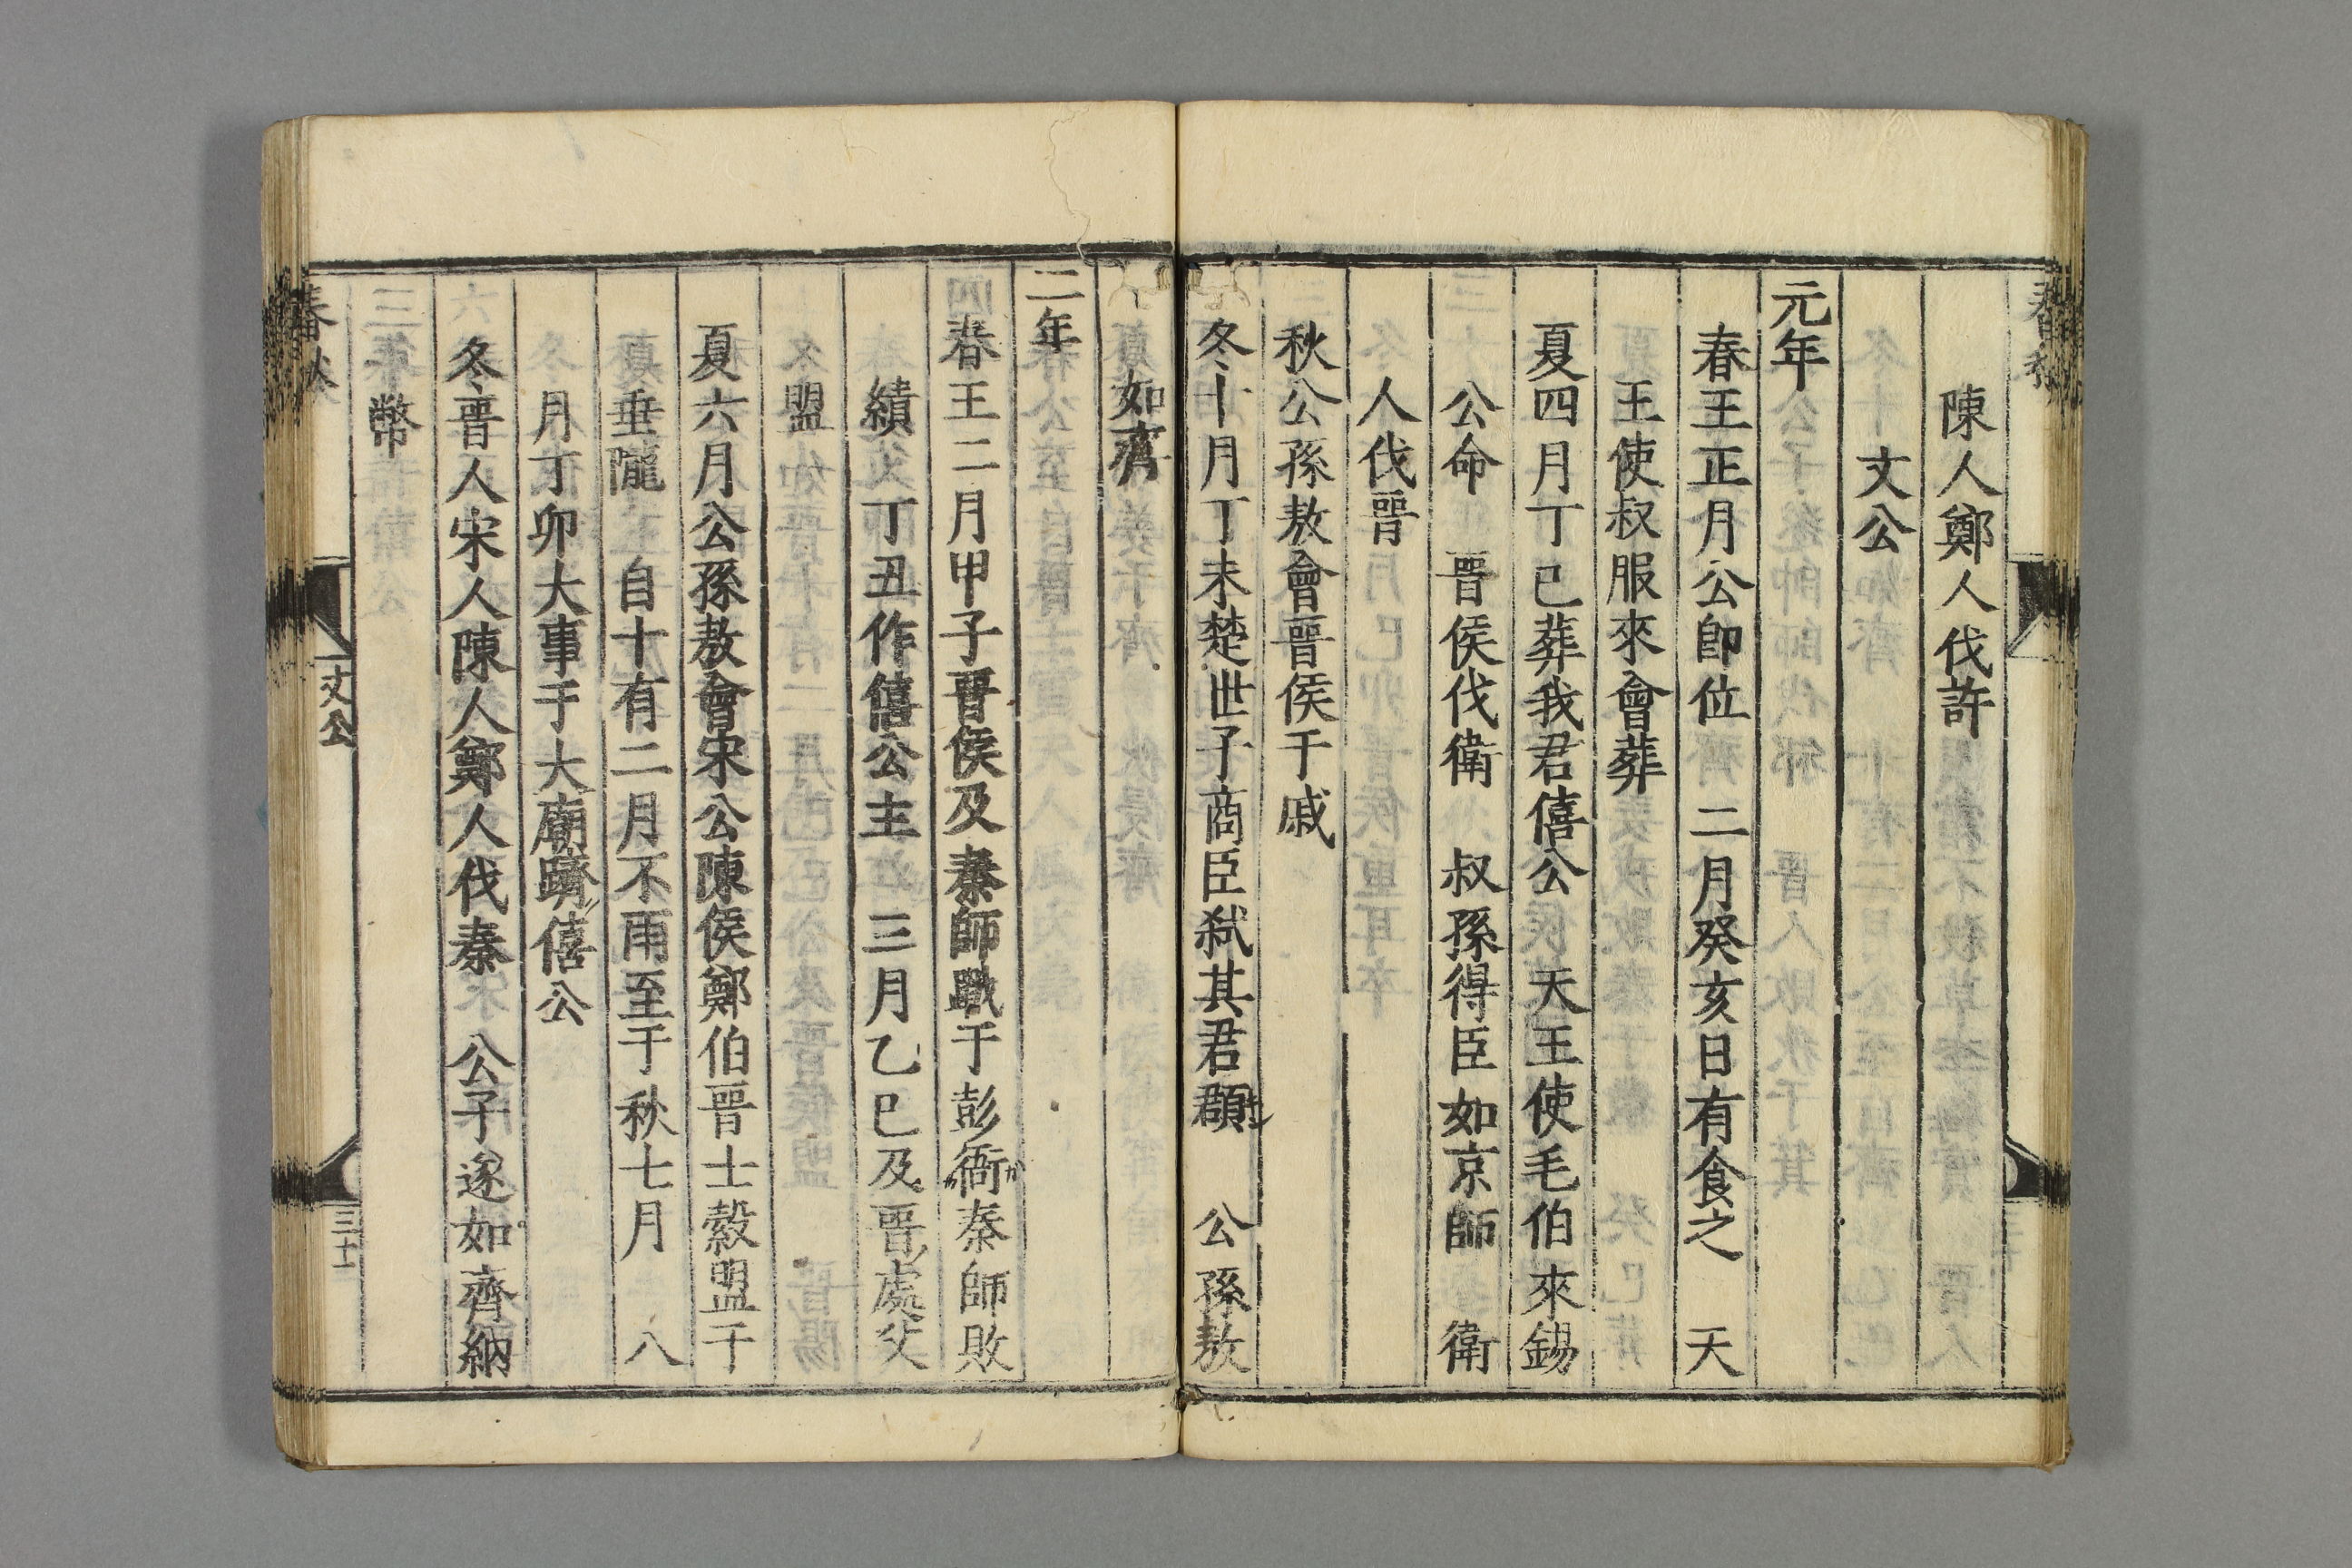 陳人鄭人伐許
文公
元年
春王正月公卽位　二月癸亥日有食之　天
王使叔服來會葬
夏四月丁巳葬我君僖公　天王使毛伯來錫
公命　晉侯伐衛　叔孫得臣如京師　衛
人伐晉
秋公孫敖會晉侯于戚
冬十月丁未楚世子商臣弑其君頵　公孫敖
如齊
二年
春王二月甲子晉侯及秦師戰于彭衙秦師敗
績　丁丑作僖公主　三月乙巳及晉處父
盟
夏六月公孫敖會宋公陳侯鄭伯晉士縠盟于
垂隴　自十有二月不雨至于秋七月　八
月丁卯大事于大廟躋僖公
冬晉人宋人陳人鄭人伐秦　公子遂如齊納
幣
春秋
文公
三十